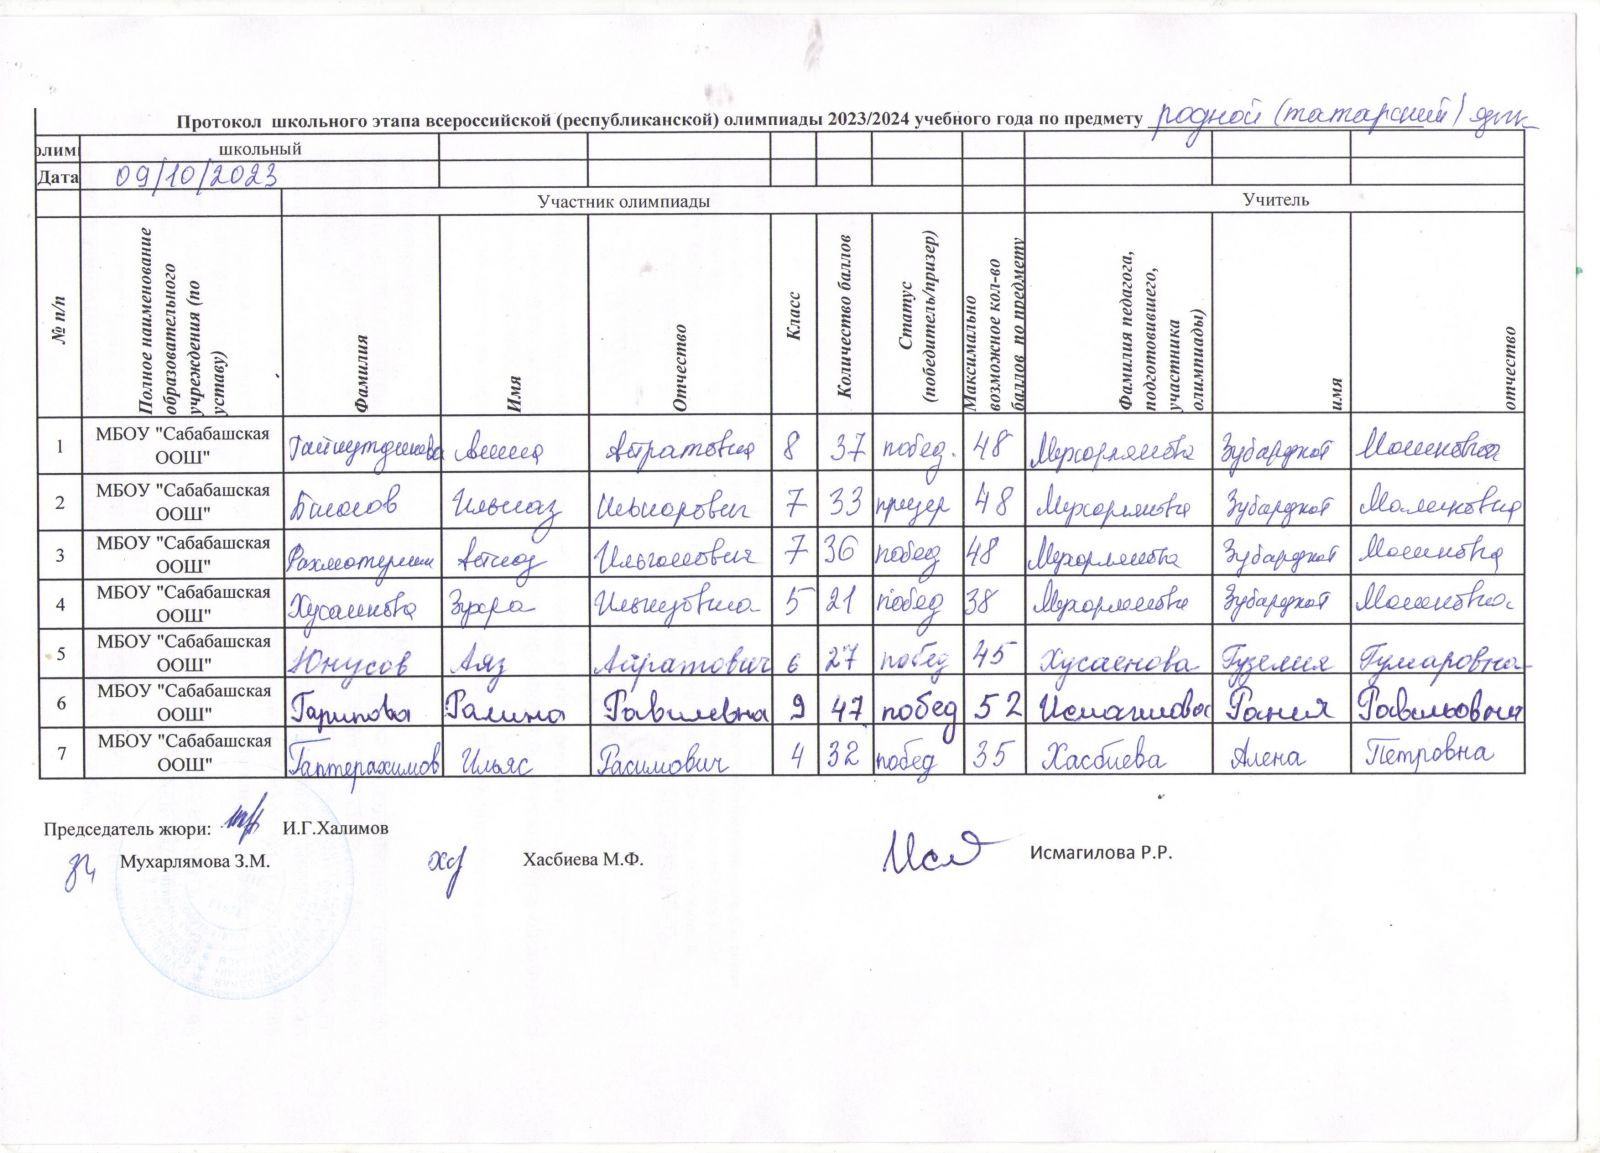 Протокол школьного этапа всероссийской (республиканской) олимпиады 2023/2024 учебного года по предмету родной (татарский) язык
олим школьный
Дата 09/10/2023
Участник олимпиады Учитель
№ п/п Полное наименование образовательного учреждения (по уставу) Фамилия Имя Отчество Класс Количество баллов Статус (победитель/призер) Максимально возможное кол-во баллов по предмету Фамилия педагога, подготовившего, участника олимпиады) имя отчество
1 МБОУ "Сабабашская ООШ" Гайнутдинова Айратовна 8 37 побед. 48 Мухарлямова Зубарджат
2 МБОУ "Сабабашская ООШ" Ильназ 7 33 призер 48 Мухарлямова Зубарджат
3 МБОУ "Сабабашская ООШ" 7 36 побед 48 Мухарлямова Зубарджат
4 МБОУ "Сабабашская ООШ" Хусаинова Зухра 5 21 побед 38 Мухарлямова Зубарджат
5 МБОУ "Сабабашская ООШ" Юнусов Аяз Айратович 6 27 побед 45 Хусаенова Гузелия Гумаровна
6 МБОУ "Сабабашская ООШ" Гарипова Ралина Равилевна 9 47 побед 52 Исмагилова Рания
7 МБОУ "Сабабашская ООШ" Гаптерахимов Ильяс Расимович 4 32 побед 35 Хасбиева Алена Петровна
Председатель жюри: И.Г.Халимов
Мухарлямова З.М. Хасбиева М.Ф. Исмагилова Р.Р.